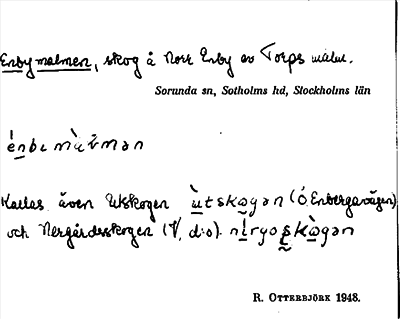 Enbymalmen, skog å Norr Enby av Torps malm.
Sorunda sn, Sotholms hd, Stockholms län
énbı màƚmən
Kallas även Utskogen ùtskogən (Ó Enbergavägen)
och Nergårdsskogen (V, d:o). nèrgoʂskògən
R. Otterbjörk 1948.